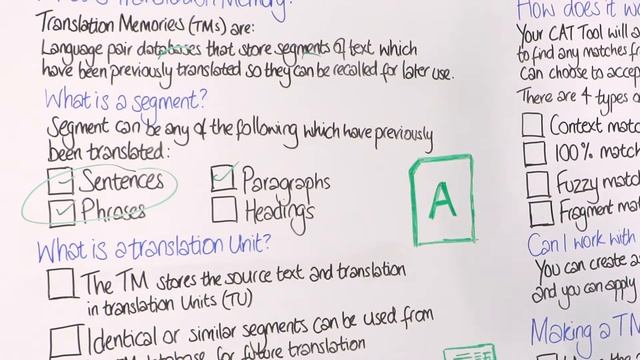 Translation Memories (TMs) are:
Language pair databases that store segments of text which
have been previously translated so they can be recalled for later use.
What is a segment?
Segment can be any of the following which have previously
been translated:
Sentences
Paragraphs
Phrases
Headings
A
What is a translation Unit?
The TM stores the source text and translation
in translation Units (TU)
Identical or similar segments can be used from
TM database for future translation
How does it wo
Your CAT Tool will a
to find any matches fr
Can choose to accep
There are 4 types o
Context matc
100% match
Fuzzy matc
Fragment mat
Can I work with
You can create a
and you can apply
Making a TM